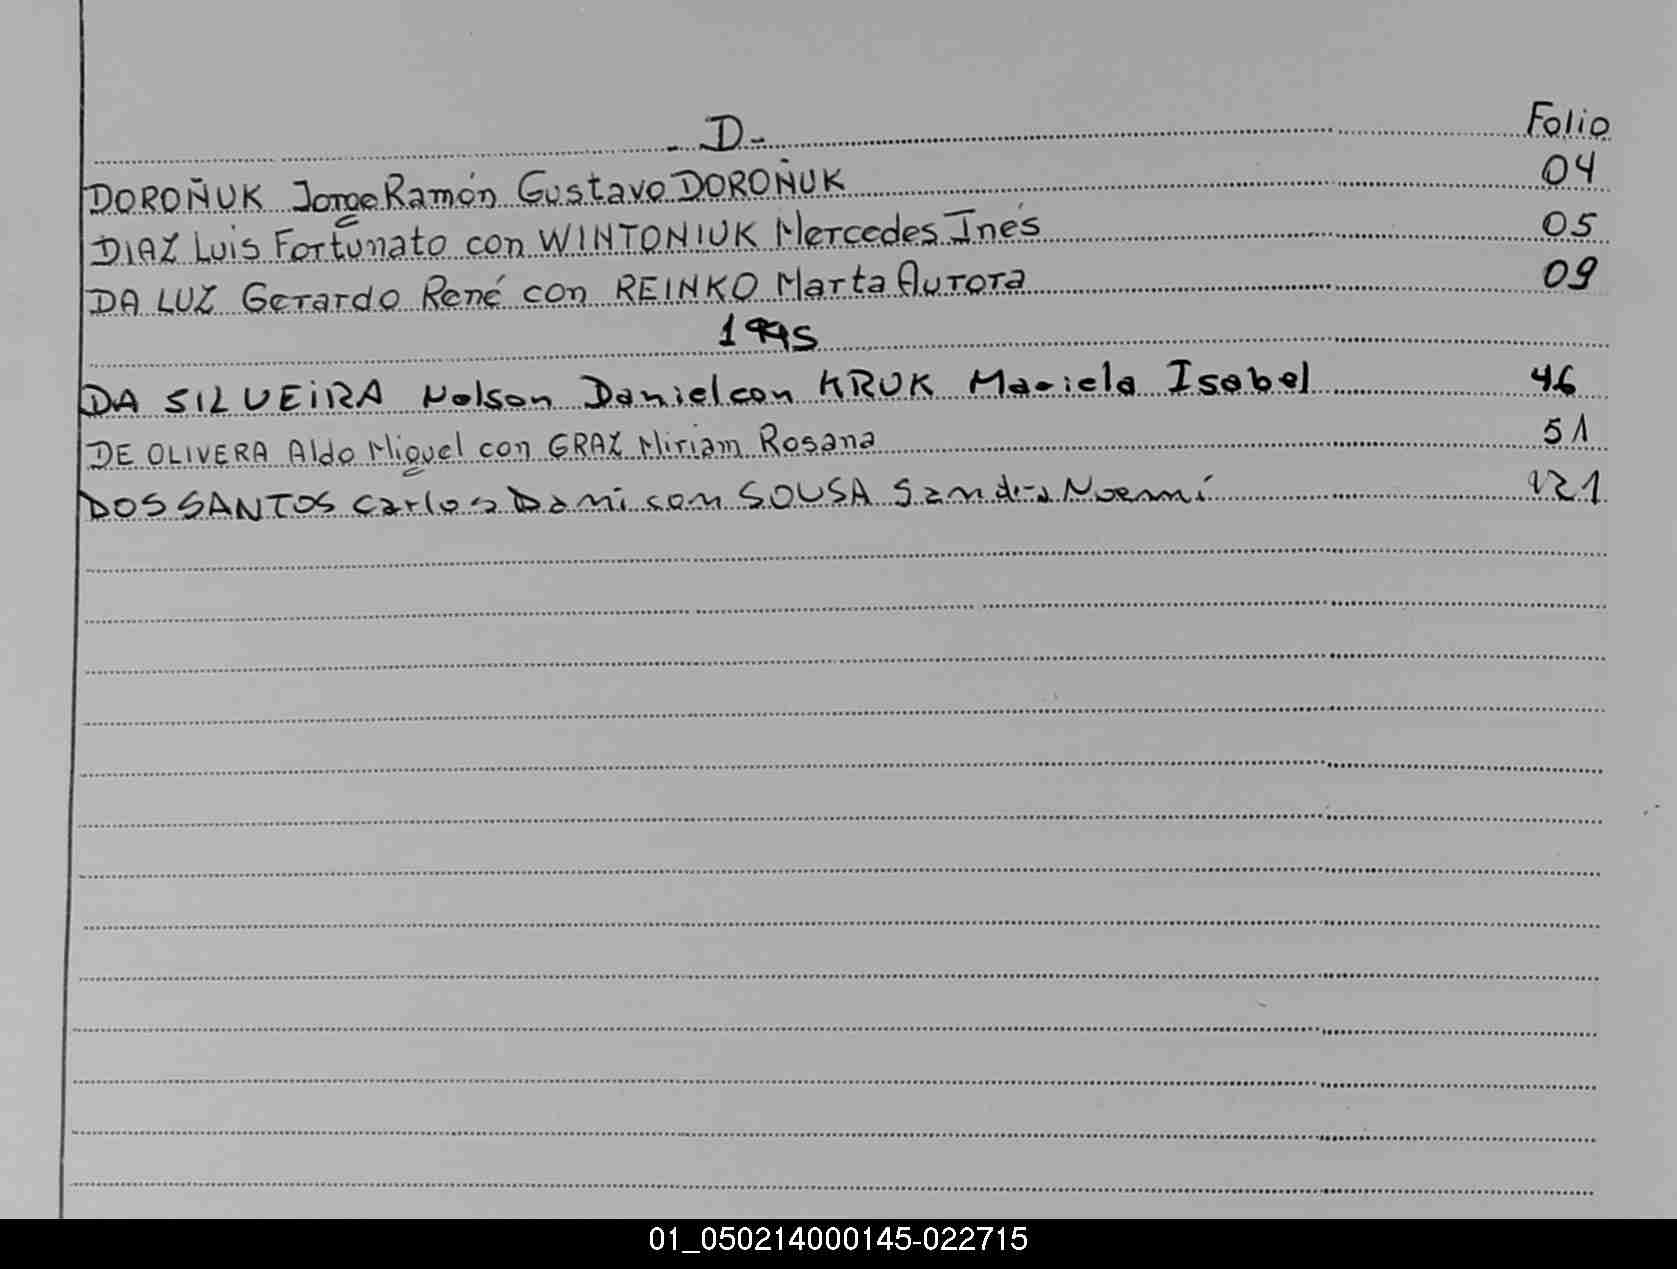 - D - Folio
DOROÑUK Jorge Ramón Gustavo DOROÑUK 04
DIAZ Luis Fortunato con WINTONIUK Mercedes Inés 05
DA LUZ Gerardo René con REINKO Marta Aurora 09
1995
DA SILVEIRA Nelson Daniel con KRUK Mariela Isabel 46
DE OLIVERA Aldo Miguel con GRAZ Miriam Rosana 51
DOS SANTOS Carlos Dani con SOUSA Sandra Noemí 121
01_050214000145-022715